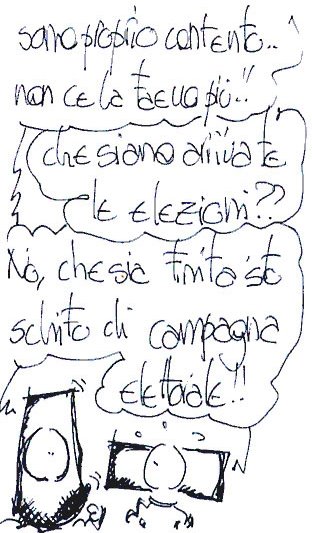 sono proprio contento..
non ce la facevo più!!
che siano arrivate
le elezioni??
No, che sia finita 'sto
schifo di campagna
elettorale!!